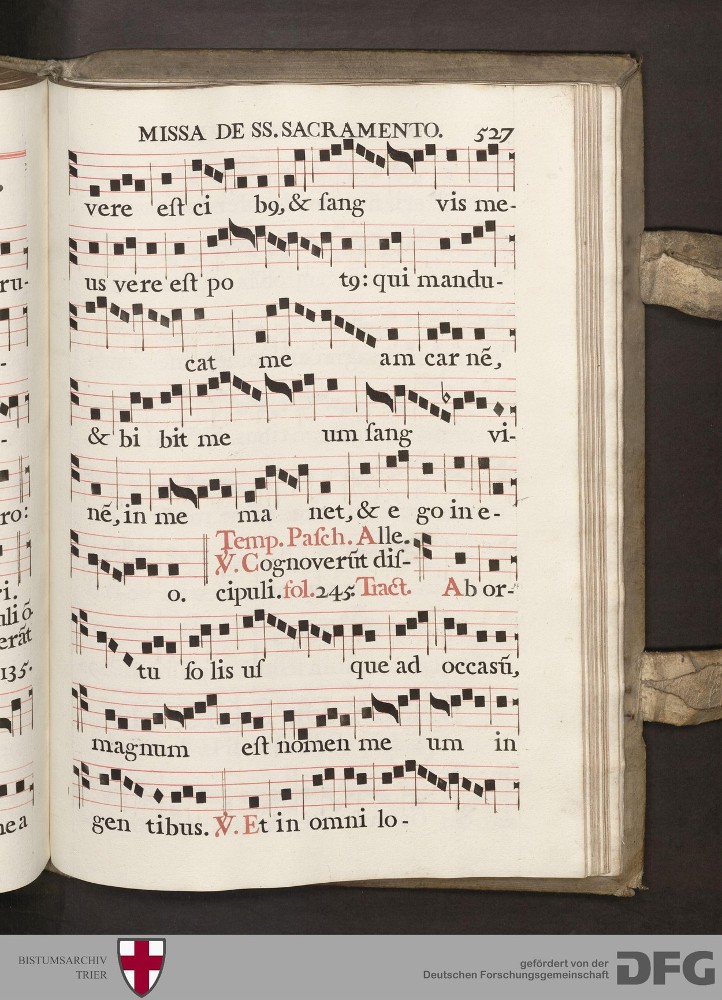 MISSA DE SS. SACRAMENTO. 527
vere eſt ci b9, & ſang vis me-
us vere eſt po t9: qui mandu-
cat me am car nē,
& bi bit me um ſang vi-
nē, in me ma net, & e go in e-
Temp. Paſch. Alle.
℣. Cognoverūt diſ-
o. cipuli. fol. 245. Tract. Ab or-
tu ſo lis uſ que ad occasū,
magnum eſt nomen me um in
gen tibus. ℣. Et in omni lo-
ru-
ro:
ri.
uli ō
erāt
135.
nea
BISTUMSARCHIV
TRIER
gefördert von der
Deutschen Forschungsgemeinschaft
DFG